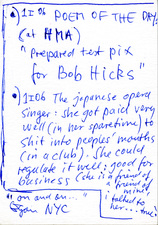 1I06 POEM OF THE DAY!
(at HMA)
"prepared text pix
for Bob Hicks"
1I06 The japanese opera
singer: she got paid very
well (in her sparetime) to
shit into peoples' mouths
(in a club). She could
regulate it well; good for
business (she is a friend of
a friend of
mine
I talked to
her... true
"on and on..."
NYC